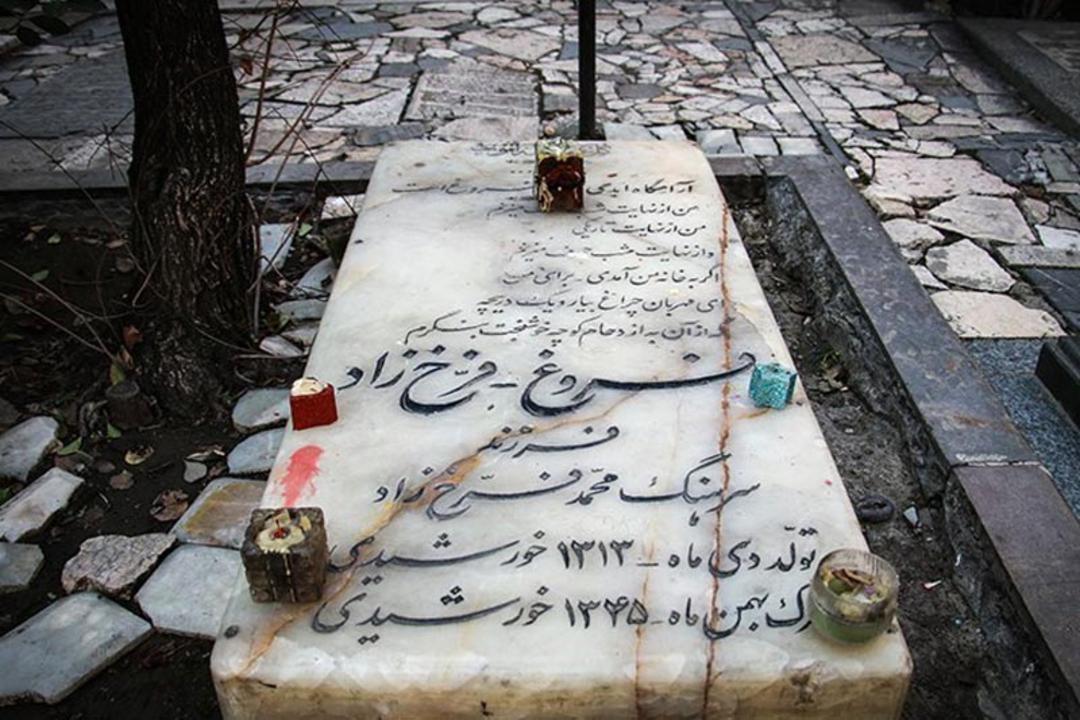 آرامگاه ابدی فروغ است
من از نهایت
من از نهایت تاریکی
و از نهایت شب
اگر به خانه من آمدی - برای من
ای مهربان چراغ بیار و یک دریچه
که از آن به ازدحام کوچه خوشبخت بنگرم
فروغ - فرّخ زاد
فرزند
سرهنگ محمّد فرّخ زاد
تولّد دی ماه - ۱۳۱۳ خورشیدی
بهمن ماه - ۱۳۴۵ خورشیدی